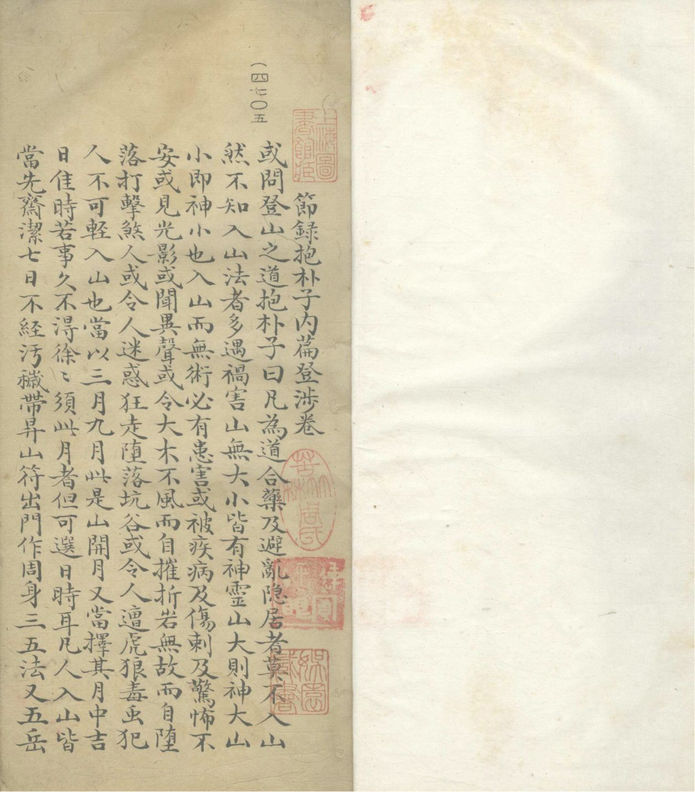 (四七〇五
節録抱朴子内篇登涉卷
或問登山之道抱朴子曰凡為道合藥及避亂隐居者莫不入山
然不知入山法者多遇禍害山無大小皆有神靈山大則神大山
小即神小也入山而無術必有患害或被疾病及傷刺及驚怖不
安或見光影或聞異聲或令大木不風而自摧折岩無故而自墮
落打擊煞人或令人迷惑狂走堕落坑谷或令人遭虎狼毒虫犯
人不可軽入山也當以三月九月此是山開月又當擇其月中吉
日佳時若事久不得徐〻須此月者但可選日時耳凡人入山皆
當先齋潔七日不經汚穢帶昇山符出門作周身三五法又五岳
上海圖書館藏